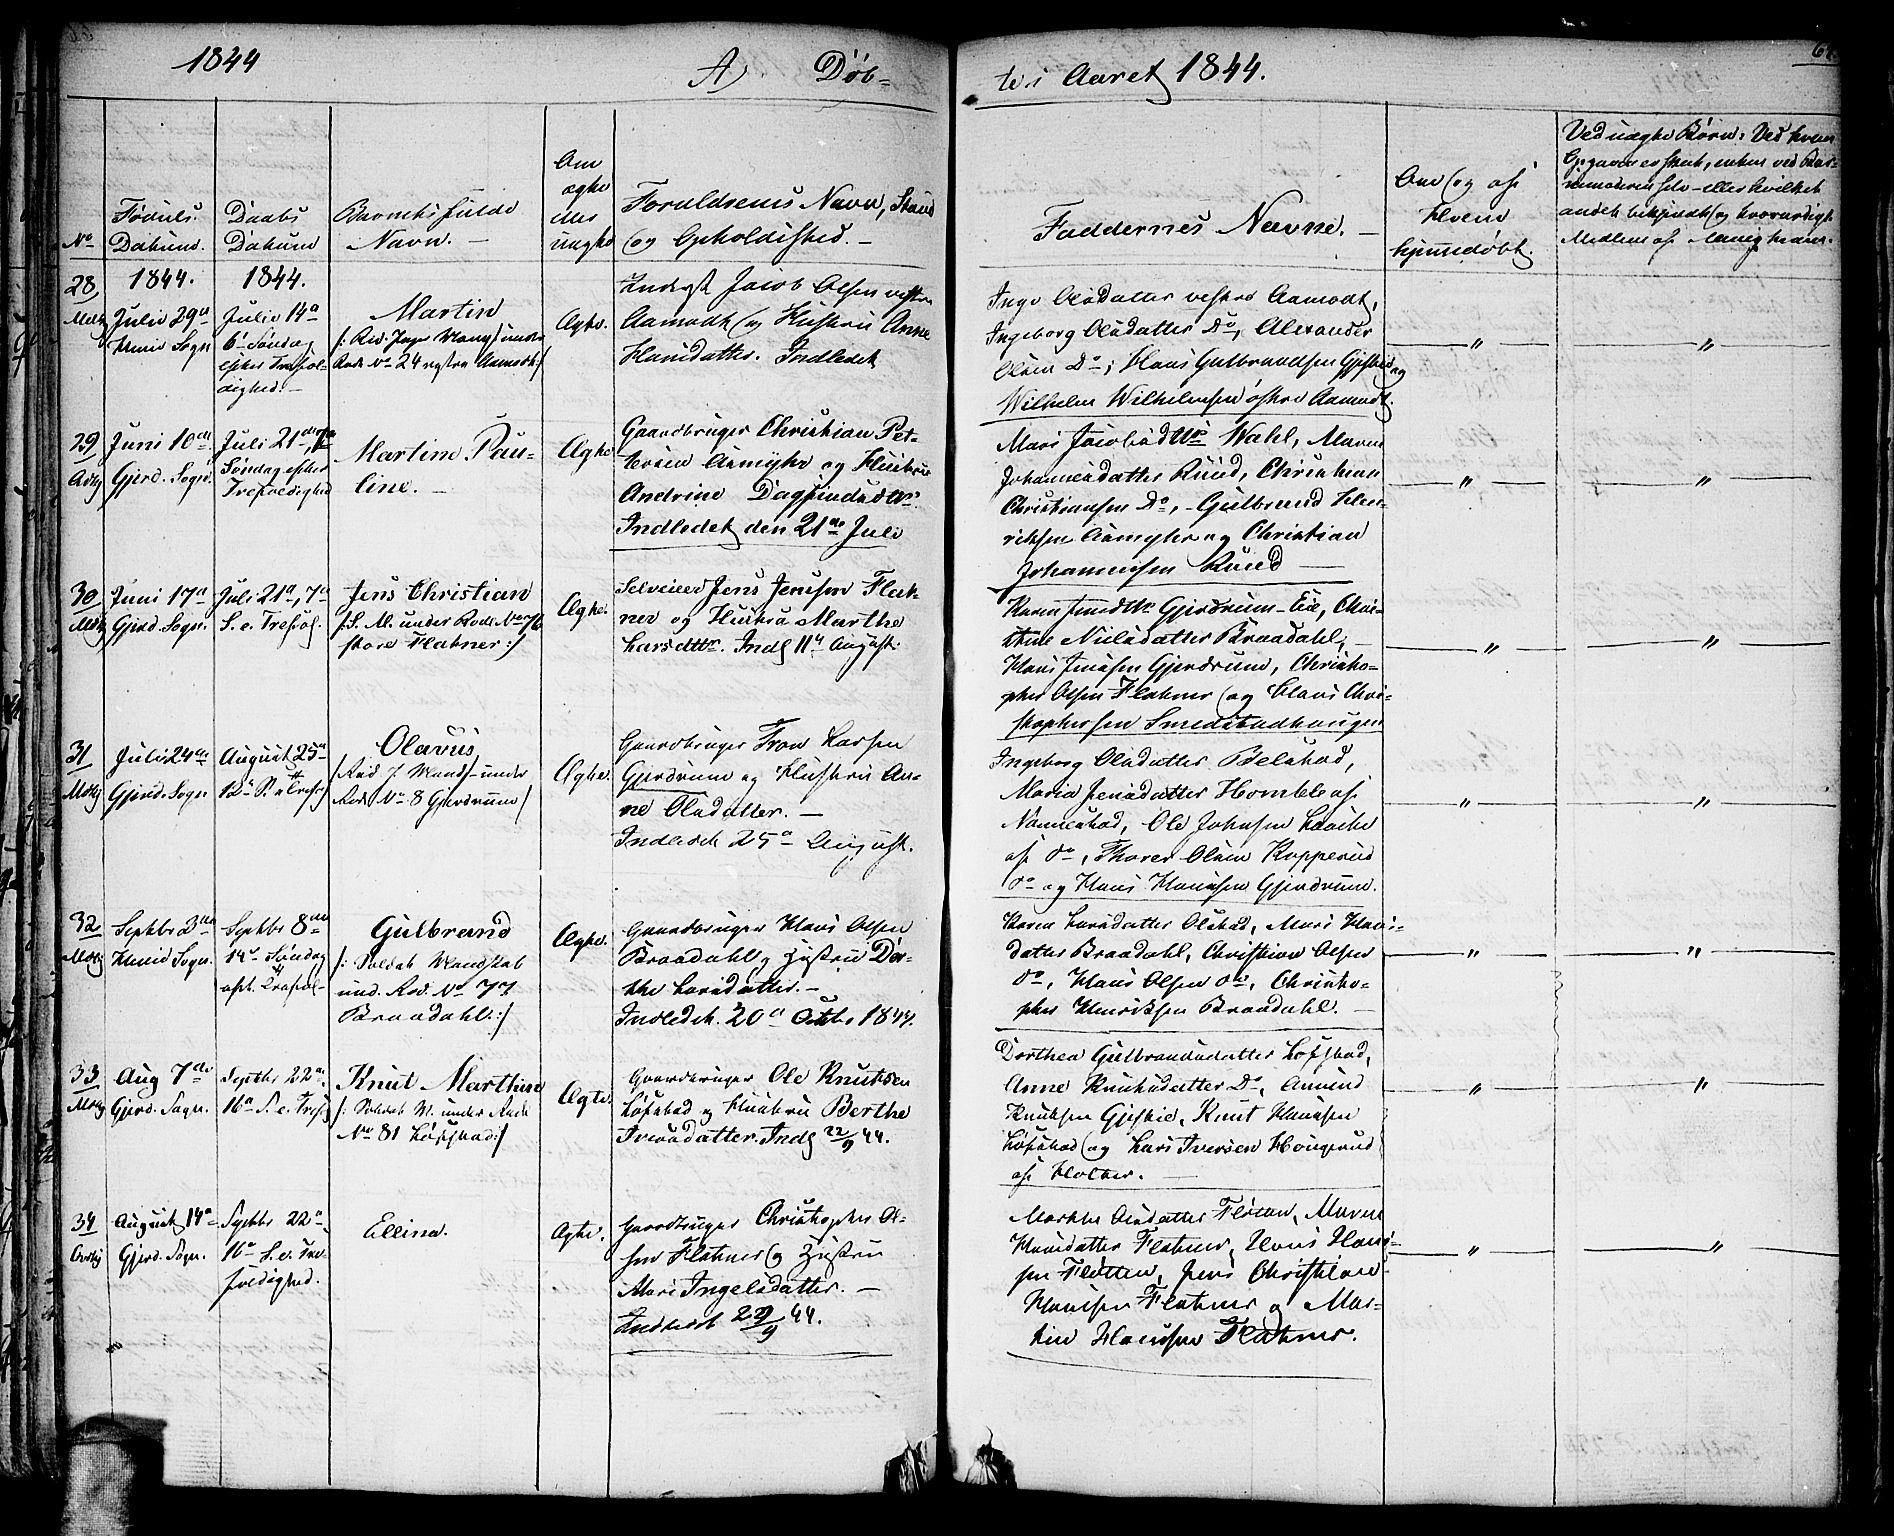 1844
A) Døb-
te i Aaret 1844.
No
Fødsels
Datum.
Daabs
Datum
Barnets fulde
Navn. —
Om
ægte
eller
uægte
Forældrenes Navn, Stand
og Opholdssted. —
Faddernes Navne. —
Om og af
hvem
hjemmedøbt.
Ved uægte Børn: Ved hvem
Opgaven er skeet, enten ved Bar-
nemoderen selv eller hvilket
andet bekjendt og troværdigt
Medlem af Menigheden.
28,
1844.
Julii 29
Heni Sogn
1844.
Julii 14
6 Søndag
efter Trefol-
dighed. —
Martin
Ægte.
Jacob Olsen vestre
Aamodt og Hustru Anne
Hansdatter. Indledet
Inge Olsdatter vestre Aamodt,
Ingeborg Olsdatter Do, Alexander
Olsen Do, Hans Gulbrandsen
Wilhelm Wilhelmsen østre Aamodt.
29
Juni 10
Gjerd. Sogn.
Juli 21
Søndag efter
Trefoldighed
Martine Pau-
line. —
Ægte
Gaardbruger Christian Pet-
ersen Aamyhr og Hustrue
Andrine Dagfindsdtr.
Indledet den 21de Juli
Mari Jacobsdtr Wahl, Maren
Johannesdatter Ruud, Christian
Christiansen Do, Gulbrand Hen-
riksen Aamyhr og Christian
Johannesen Ruud —
30
Juni 17
Gjerd. Sogn.
Juli 21, 7
S. e. Trefol.
Jens Christian
/: S. M. under Rode No 76
store Flatner :/
Ægte.
Selveier Jens Jensen Flat-
ner og Hustru Marthe
Larsdttr. Indl 11 August.
Karen Gjerdrum-Eie, Chri-
stine Nielsdatter Braadahl,
Hans Jensen Gjerdrum, Christo-
pher Olsen Flatner og Hans Chri-
stophersen Smedstadhaugen
31
Juli 24
Gjerd. Sogn.
August 25
12
Olavus
under
Rode No 8 Gjerdrum/
Ægte.
Gaardbruger Iron Larsen
Gjerdrum og Hustru An-
ne Olsdatter. —
Indledet 25 August.
Ingeborg Olsdatter
Maria Jensdatter Homble af
Nannestad, Ole Johnsen
af do, Thorer Olsen Kopperud
do og Hans Hansen Gjerdrum.
32
Septbr 3
Heni Sogn.
Septbr 8
14 Søndag
eft. Trefol-
Gulbrand
/: Soldat Mandskab
und. Rod. No 77
Braadahl. :/
Ægte.
Gaardbruger Hans Olsen
Braadahl og Hustru Dor-
the Larsdatter. —
Indledet. 20 Octbr 1844.
Karen Larsdatter Olstad, Mari Hans-
datter Braadahl, Christian Olsen
do, Hans Olsen do, Christo-
pher Henriksen Braadahl. —
33
Aug 7de
Gjerd. Sogn.
Septbr 22
16 S. e. Tref.
Knut Marthin
/: Soldat M. under Rode
No 81 Løfstad :/
Ægte.
Gaardbruger Ole Knutsen
Løfstad og Hustrue Berthe
Iversdatter. Indl 22/9 44.
Dorthea Gulbrandsdatter Løfstad,
Anne Knutsdatter Do, Amund
Knutsen Gjestad, Knut Hansen
Løfstad og Lars Iversen Hougerud
af Holter. —
34
August 14
Gjerd. Sogn.
Septbr 22
16 S. e. Tre-
foldighed.
Ellina.
Ægte.
Gaardbruger Christopher Ol-
sen Flatner og Hustru
Mari Ingelsdatter. —
Indledet 22/9 44.
Marthe Olsdatter Flotten, Maren
Hansdatter Flatner, Hans Han-
sen Flotten, Jens Christian
Hansen Flatner og Mar-
tin Hansen Flatner.